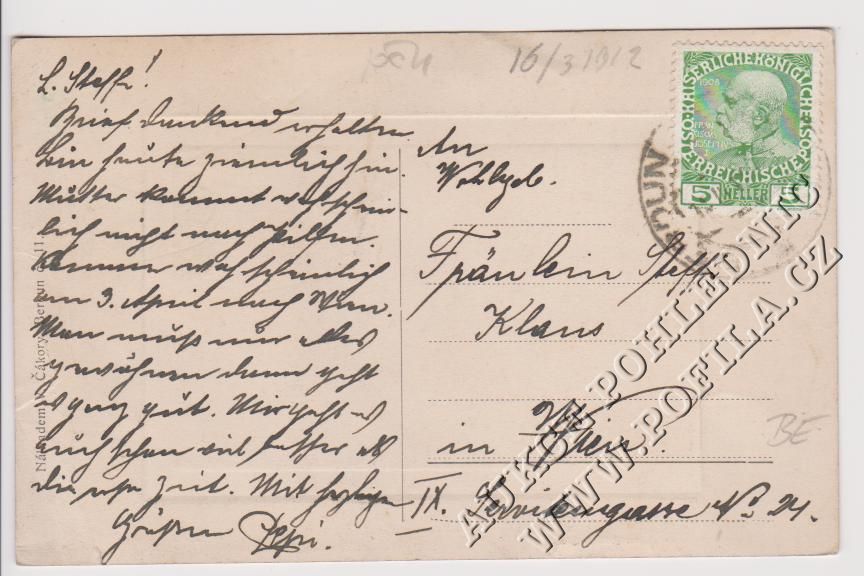 L. Steffi!
Brief dankend erhalten
bin heute ziemlich hin.
Mutter kommt wahrschein-
lich nicht nach Pilsen.
Komme wahrscheinlich
am 3. April nach Wien.
Man muß nur alles
gewöhnen dann geht
es ganz gut. Mir geht es
auch schon viel besser als
die erste Zeit. Mit herzlichen
Grüßen Pepi.
16/3 1912
An
Wohlgeb.
Fräulein Steffi
Klaus
in Wien.
IX. Servitengasse No 24.
BE
ÖSTERREICHISCHE POST
KAISERLICHE KÖNIGLICHE
1908
FRANZ JOSEPH I
5 HELLER 5
BERAUN
Nákladem Čákory Beraun 11
AUKCE POHLEDNIC
WWW.POFILA.CZ